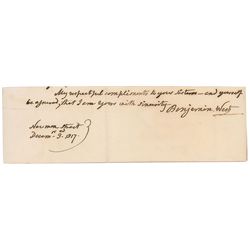 My respectful compliments to your sisters — and yourself
be assured, that I am yours with sincerity
Benjamin West
Newman Street
Decemr. 3rd 1817.